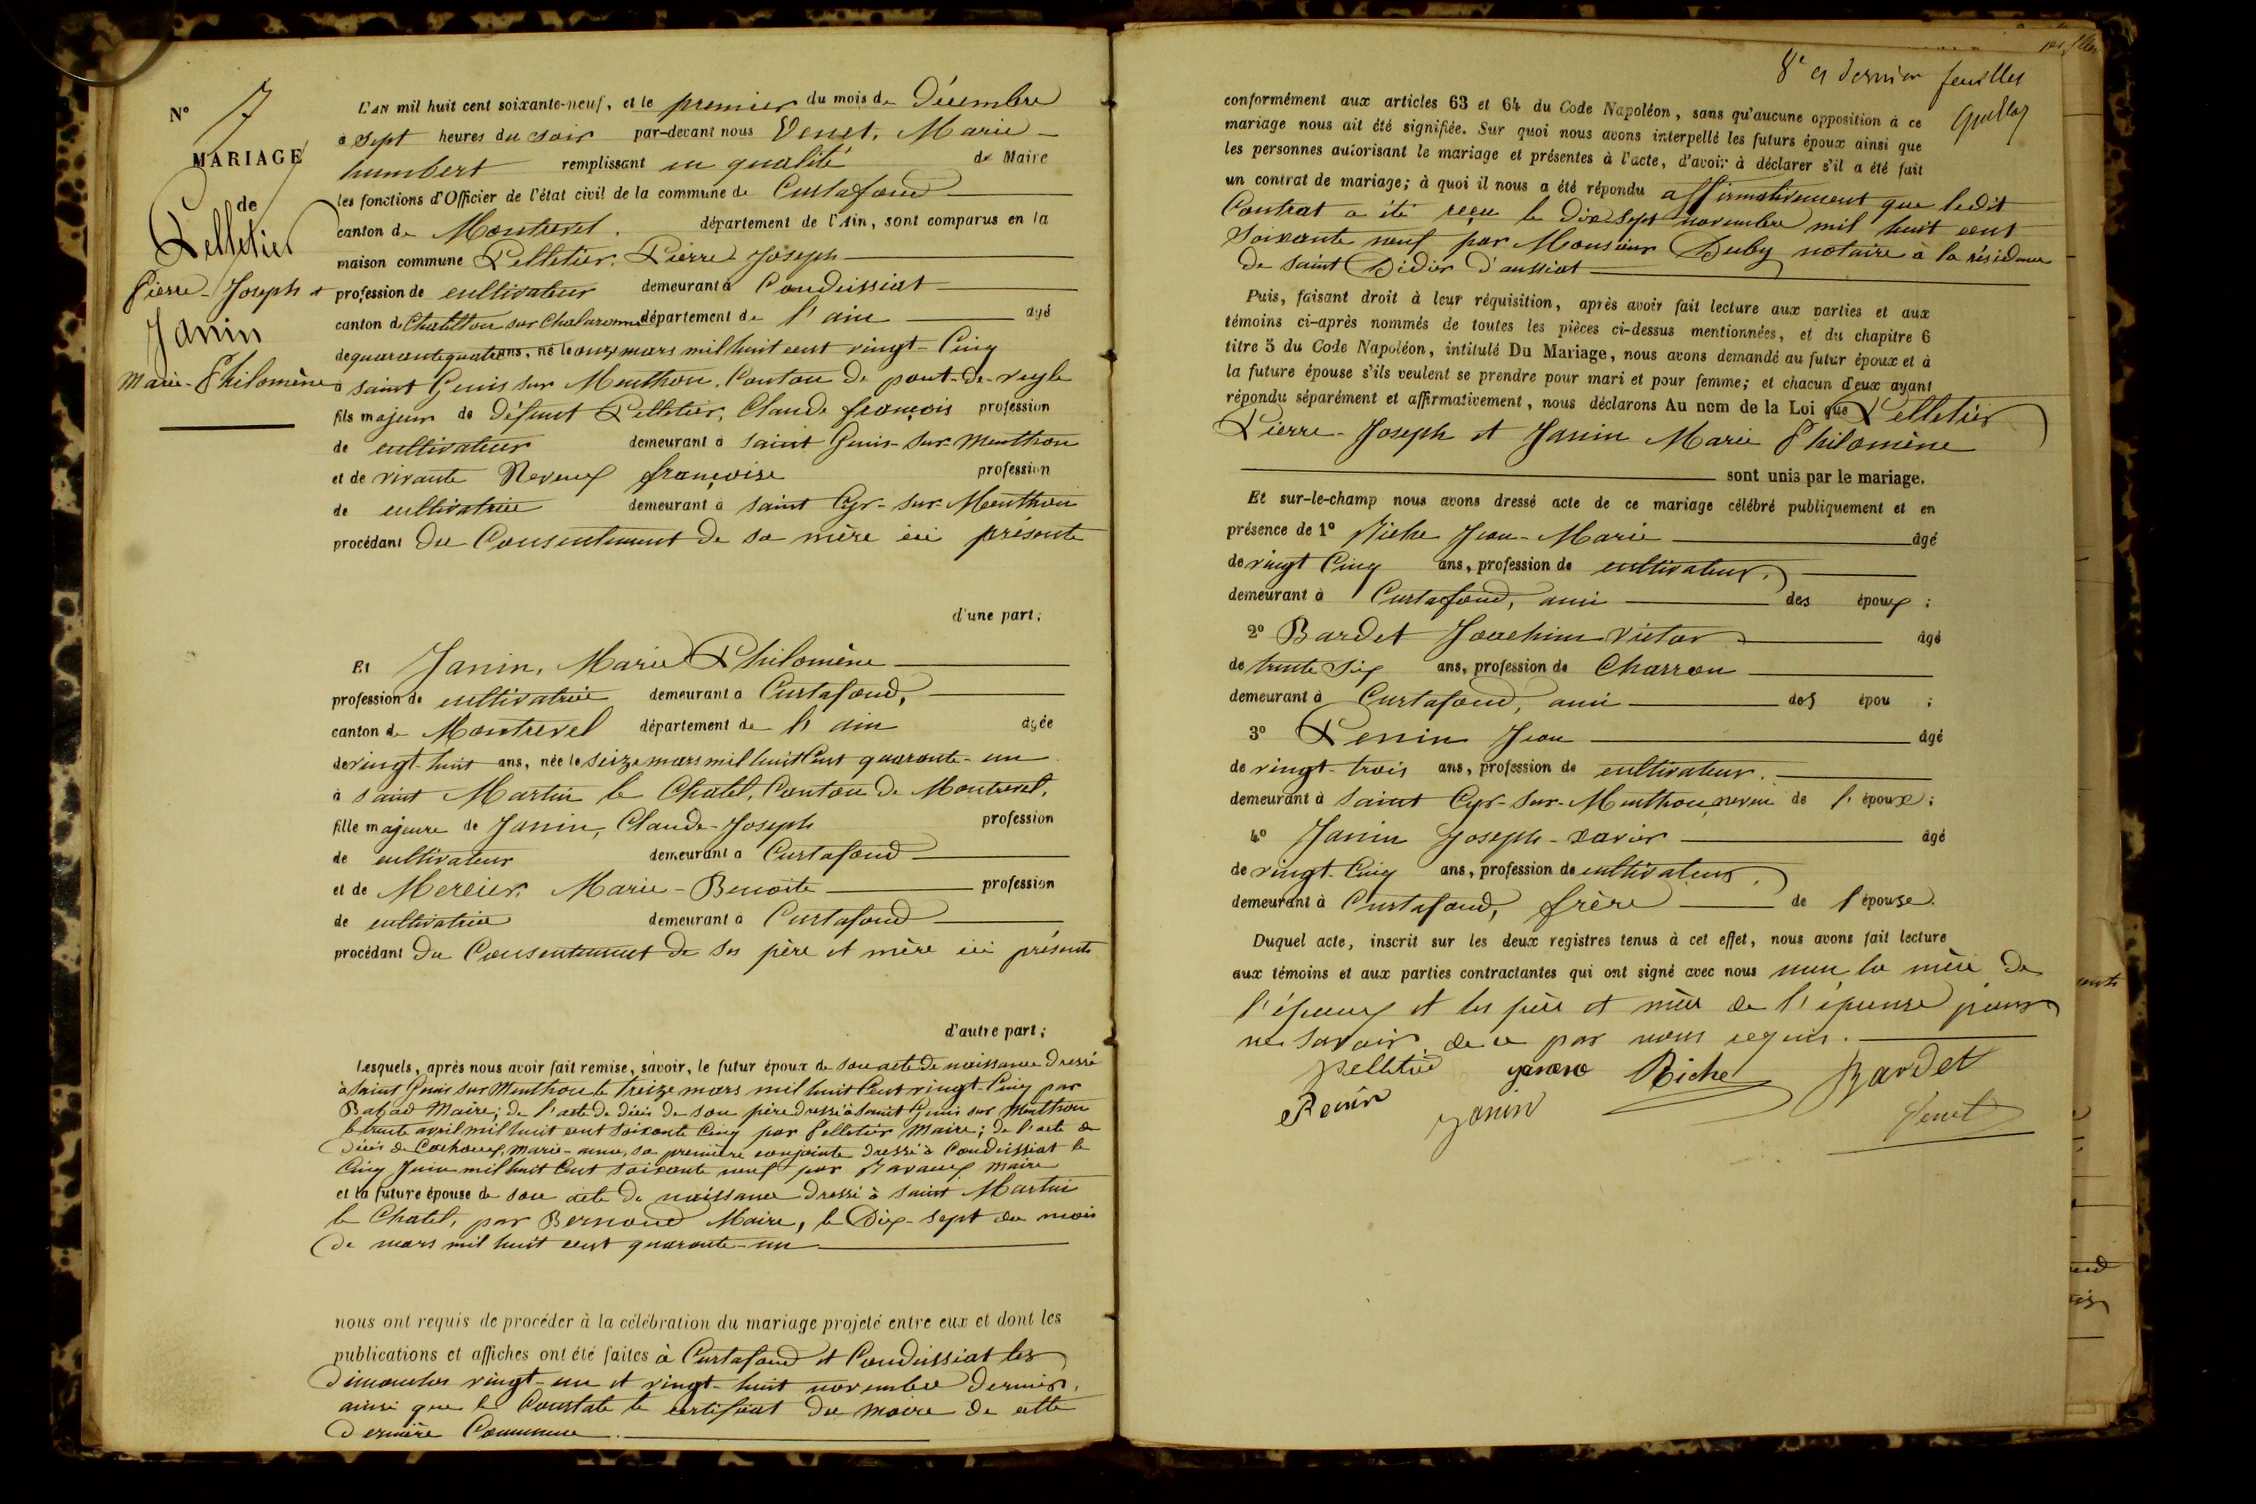 N° 7
MARIAGE
de
Pelletier
Pierre-Joseph et
Janin
Marie-Philomène
L'AN mil huit cent soixante-neuf, et le premier du mois de Décembre
à sept heures du soir par-devant nous Venet, Marie
humbert remplissant en qualité de Maire
les fonctions d'Officier de l'état civil de la commune de Curtafond
canton de Montrevel. département de l'Ain, sont comparus en la
maison commune Pelletier, Pierre Joseph
profession de cultivateur demeurant à Condeissiat
canton de Chatillon sur Chalaronne département de l'ain âgé
de quarante quatre ans, né le onze mars mil huit cent vingt-Cinq
à saint Genis sur Menthon, Canton de pont-de-veyle
fils majeur de défunt Pelletier, Claude françois profession
de cultivateur demeurant à saint Genis-sur-menthon
et de vivante Neveux françoise profession
de cultivatrice demeurant à saint Cyr-sur-Menthon
procédant du Consentement de sa mère ici présente
d'une part;
Et Janin, Marie Philomène
profession de cultivatrice demeurant à Curtafond,
canton de Montrevel département de l'ain âgée
de vingt-huit ans, née le seize mars mil huit Cent quarante-un
à saint Martin le Chatel, Canton de Montrevel,
fille majeure de Janin, Claude-Joseph profession
de cultivateur demeurant à Curtafond
et de Mercier, Marie-Benoite profession
de cultivatrice demeurant à Curtafond
procédant du Consentement de ses père et mère ici présents
d'autre part;
Lesquels, après nous avoir fait remise, savoir, le futur époux de son acte de naissance dressé
à saint Genis sur Menthon le treize mars mil huit Cent vingt-Cinq par
maire; de l'acte de décès de son père dressé à saint Genis sur Menthon
le trente avril mil huit cent soixante Cinq par Pelletier Maire; de l'acte de
décès de Cochoux, Marie-anne, sa première conjointe dressé à Condeissiat le
Cinq Juin mil huit Cent soixante neuf par maire
et la future épouse de son acte de naissance dressé à saint Martin
le Chatel, par Bernoud Maire, le Dix-sept du mois
de mars mil huit cent quarante-un
nous ont requis de procéder à la célébration du mariage projeté entre eux et dont les
publications et affiches ont été faites à Curtafond et Condeissiat les
dimanches vingt-un et vingt-huit novembre dernier,
ainsi que le Constate le certificat du maire de cette
dernière Commune.
8e et dernier feuillet
conformément aux articles 63 et 64 du Code Napoléon, sans qu'aucune opposition à ce
mariage nous ait été signifiée. Sur quoi nous avons interpellé les futurs époux ainsi que
les personnes autorisant le mariage et présentes à l'acte, d'avoir à déclarer s'il a été fait
un contrat de mariage; à quoi il nous a été répondu affirmativement que ledit
Contrat a été reçu le dix sept novembre mil huit cent
soixante neuf par Monsieur Duby notaire à la résidence
de saint Didier d'aussiat
Puis, faisant droit à leur réquisition, après avoir fait lecture aux parties et aux
témoins ci-après nommés de toutes les pièces ci-dessus mentionnées, et du chapitre 6
titre 5 du Code Napoléon, intitulé Du Mariage, nous avons demandé au futur époux et à
la future épouse s'ils veulent se prendre pour mari et pour femme; et chacun d'eux ayant
répondu séparément et affirmativement, nous déclarons Au nom de la Loi que Pelletier
Pierre-Joseph et Janin Marie Philomène
sont unis par le mariage.
Et sur-le-champ nous avons dressé acte de ce mariage célébré publiquement et en
présence de 1° Riche Jean-Marie âgé
de vingt Cinq ans, profession de cultivateur,
demeurant à Curtafond, ami des époux;
2° Bardet Joachim Victor âgé
de trente six ans, profession de Charron
demeurant à Curtafond, ami des épou;
3° Perrin Jean âgé
de vingt-trois ans, profession de cultivateur.
demeurant à saint Cyr-sur-Menthon, neveu de l'époux;
4° Janin Joseph-xavier âgé
de vingt-Cinq ans, profession de cultivateur,
demeurant à Curtafond, frère de l'épouse.
Duquel acte, inscrit sur les deux registres tenus à cet effet, nous avons fait lecture
aux témoins et aux parties contractantes qui ont signé avec nous non la mère de
l'époux et les père et mère de l'épouse pour
ne savoir, de ce par nous requis.
pelletier janin Riche Bardet
Perrin janin Venet